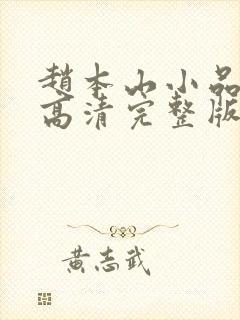 趙本山小品
高清完整版
黃志武